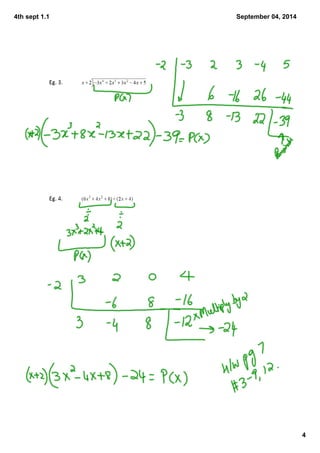 4th sept 1.1 September 04, 2014
Eg. 3. x + 2 | -3x⁴ + 2x³ + 3x² - 4x + 5
P(x)
-2 | -3 2 3 -4 5
6 -16 26 -44
-3 8 -13 22 | -39
(x+2)(-3x³+8x²-13x+22)-39=P(x)
Eg. 4. (6x³ + 4x² + 8) ÷ (2x + 4)
÷ 2 ÷ 2
3x³+2x²+4 (x+2)
P(x)
-2 | 3 2 0 4
-6 8 -16
3 -4 8 | -12 x Multiply by 2
→ -24
(x+2)(3x²-4x+8) -24 = P(x)
H/W pg 7
#3-9, 12.
4